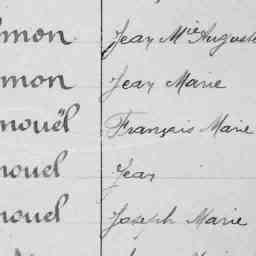 mon Jean Mie Auguste
mon Jean Marie
nouël François Marie
nouel Jean
nouel Joseph Marie